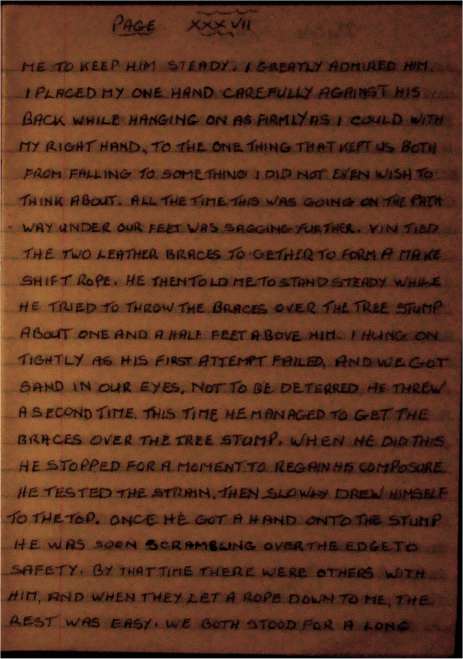 PAGE XXXVII
ME TO KEEP HIM STEADY. I GREATLY ADMIRED HIM.
I PLACED MY ONE HAND CAREFULLY AGAINST HIS
BACK WHILE HANGING ON AS FIRMLY AS I COULD WITH
MY RIGHT HAND, TO THE ONE THING THAT KEPT US BOTH
FROM FALLING TO SOMETHING I DID NOT EVEN WISH TO
THINK ABOUT. ALL THE TIME THIS WAS GOING ON THE PATH
WAY UNDER OUR FEET WAS SAGGING FURTHER. VIN TIED
THE TWO LEATHER BRACES TO GETHER TO FORM A MAKE
SHIFT ROPE. HE THEN TOLD ME TO STAND STEADY WHILE
HE TRIED TO THROW THE BRACES OVER THE TREE STUMP
ABOUT ONE AND A HALF FEET ABOVE HIM. I HUNG ON
TIGHTLY AS HIS FIRST ATTEMPT FAILED, AND WE GOT
SAND IN OUR EYES, NOT TO BE DETERRED HE THREW
A SECOND TIME. THIS TIME HE MANAGED TO GET THE
BRACES OVER THE TREE STUMP. WHEN HE DID THIS
HE STOPPED FOR A MOMENT TO REGAIN HIS COMPOSURE
HE TESTED THE STRAIN, THEN SLOWLY DREW HIMSELF
TO THE TOP. ONCE HE GOT A HAND ONTO THE STUMP
HE WAS SOON SCRAMBLING OVER THE EDGE TO
SAFETY. BY THAT TIME THERE WERE OTHERS WITH
HIM, AND WHEN THEY LET A ROPE DOWN TO ME, THE
REST WAS EASY. WE BOTH STOOD FOR A LONG